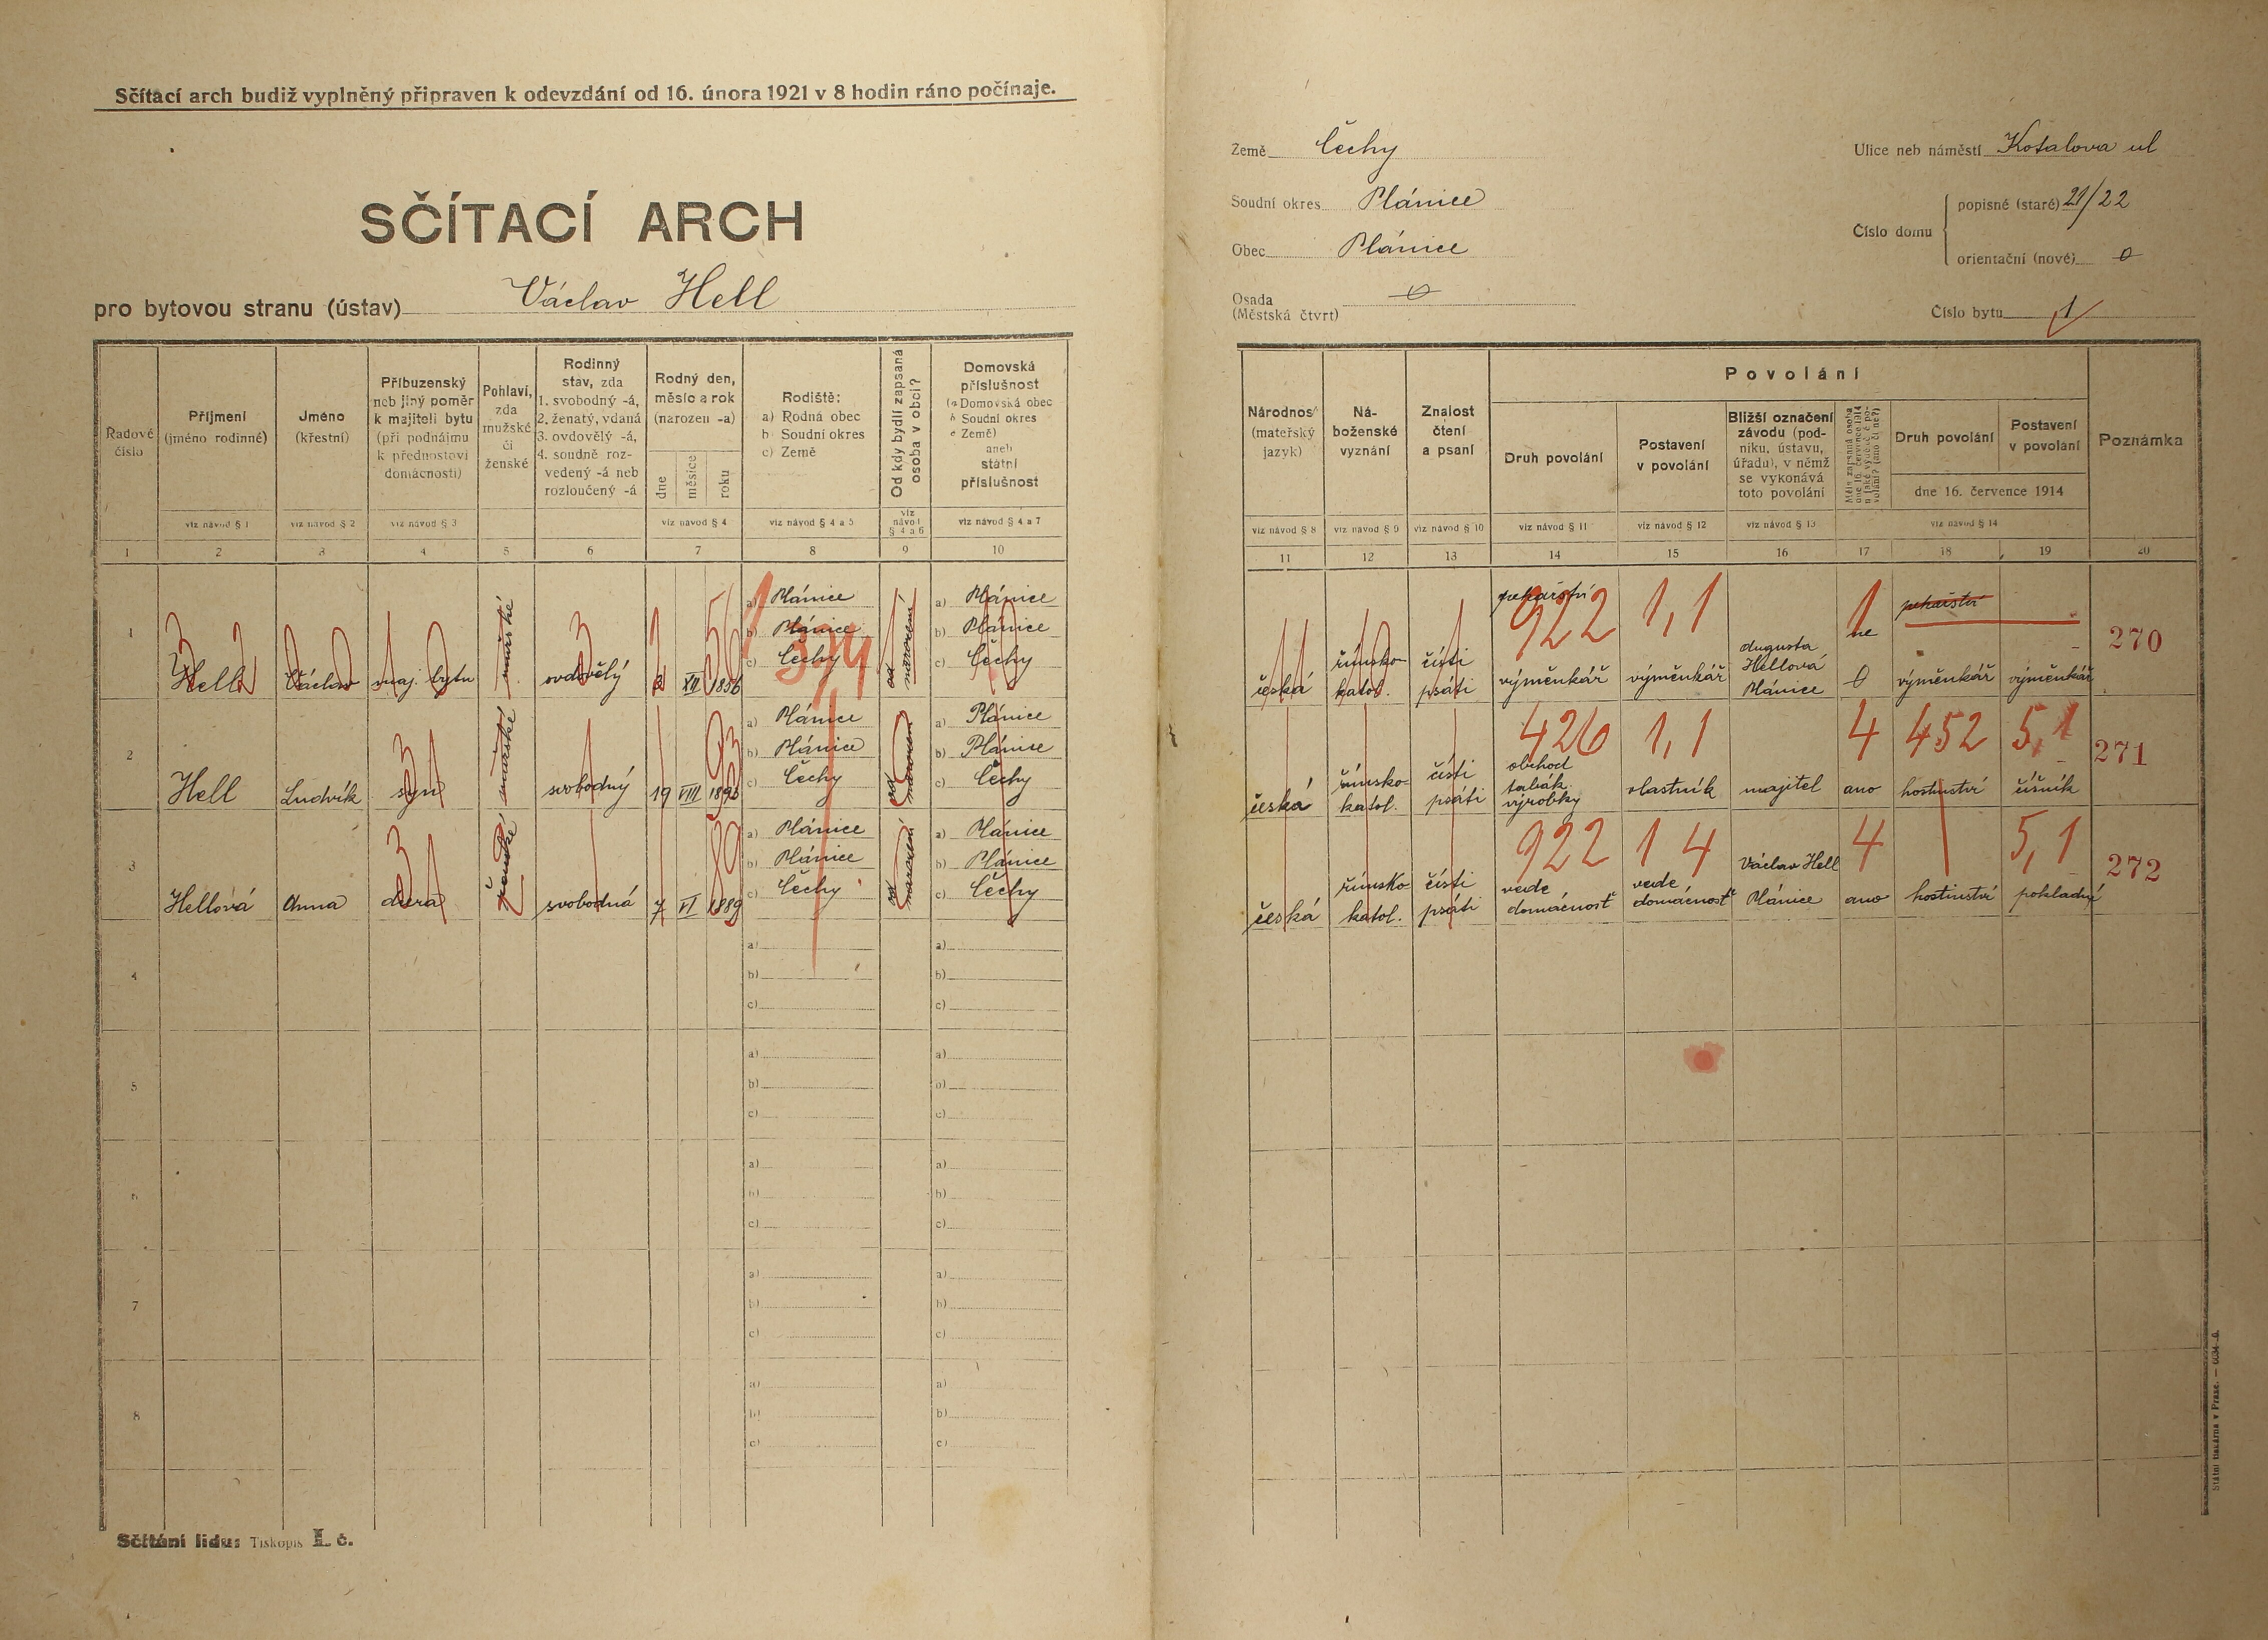 Sčítací arch budiž vyplněný připraven k odevzdání od 16. února 1921 v 8 hodin ráno počínaje.
SČÍTACÍ ARCH
pro bytovou stranu (ústav) Václav Hell
Země Čechy
Soudní okres Plánice
Obec Plánice
Osada
(Městská čtvrt)
Ulice neb náměstí Kotalova ul
Číslo domu
popisné (staré) 21/22
orientační (nové) 0
Číslo bytu 1
Řadové číslo
Příjmení (jméno rodinné)
Jméno (křestní)
Příbuzenský neb jiný poměr k majiteli bytu (při podnájmu k přednostovi domácnosti)
Pohlaví, zda mužské či ženské
Rodinný stav, zda 1. svobodný -á, 2. ženatý, vdaná 3. ovdovělý -á, 4. soudně rozvedený -á neb rozloučený -á
Rodný den, měsíc a rok (narozen -a)
dne měsíce roku
Rodiště: a) Rodná obec b) Soudní okres c) Země
Od kdy bydlí zapsaná osoba v obci?
Domovská příslušnost (a Domovská obec b Soudní okres c Země) aneb státní příslušnost
viz návod § 1 viz návod § 2 viz návod § 3 viz návod § 4 viz návod § 4 a 5 viz návod § 4 a 6 viz návod § 4 a 7
1 2 3 4 5 6 7 8 9 10
Národnost (mateřský jazyk)
Náboženské vyznání
Znalost čtení a psaní
Povolání
Druh povolání
Postavení v povolání
Bližší označení závodu (podniku, ústavu, úřadu), v němž se vykonává toto povolání
Měla zapsaná osoba dne 16. července 1914 nějaké výdělečné povolání? (ano či ne?)
Druh povolání
Postavení v povolání
dne 16. července 1914
Poznámka
viz návod § 8 viz návod § 9 viz návod § 10 viz návod § 11 viz návod § 12 viz návod § 13 viz návod § 14
11 12 13 14 15 16 17 18 19 20
1 Hell Václav maj. bytu mužské ovdovělý 2 XII 1856
a) Plánice
b) Plánice
c) Čechy
od narození
a) Plánice
b) Plánice
c) Čechy
česká římsko-katol. čísti psáti pekařství výměnkář výměnkář Augusta Hellová Plánice ne 0 pekařství výměnkář výměnkář
922 1,1 1 270
374
2 Hell Ludvík syn mužské svobodný 19 VIII 1893
a) Plánice
b) Plánice
c) Čechy
od narození
a) Plánice
b) Plánice
c) Čechy
česká římsko-katol. čísti psáti obchod tabák výrobky vlastník majitel ano hostinství číšník
426 1,1 4 452 5,1 271
3 Hellová Anna dcera ženské svobodná 7 VI 1889
a) Plánice
b) Plánice
c) Čechy
od narození
a) Plánice
b) Plánice
c) Čechy
česká římsko katol. čísti psáti vede domácnosť vede domácnosť Václav Hell Plánice ano hostinství pokladní
922 1 4 4 5,1 272
4 a) b) c) a) b) c)
5 a) b) c) a) b) c)
6 a) b) c) a) b) c)
7 a) b) c) a) b) c)
8 a) b) c) a) b) c)
Sčítání lidu: Tiskopis I. č.
Státní tiskárna v Praze.